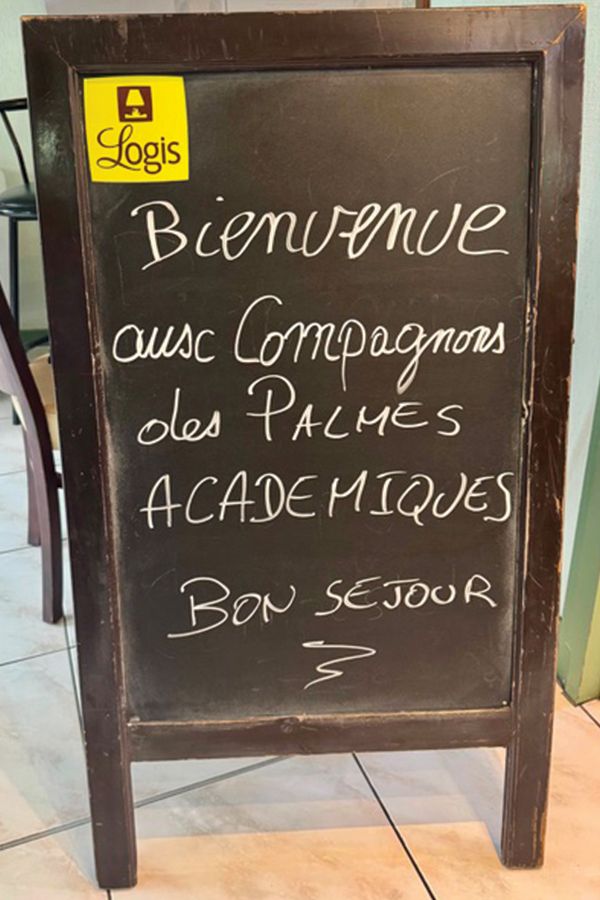 Logis
Bienvenue
aux Compagnons
des PALMES
ACADEMIQUES
BON SEJOUR